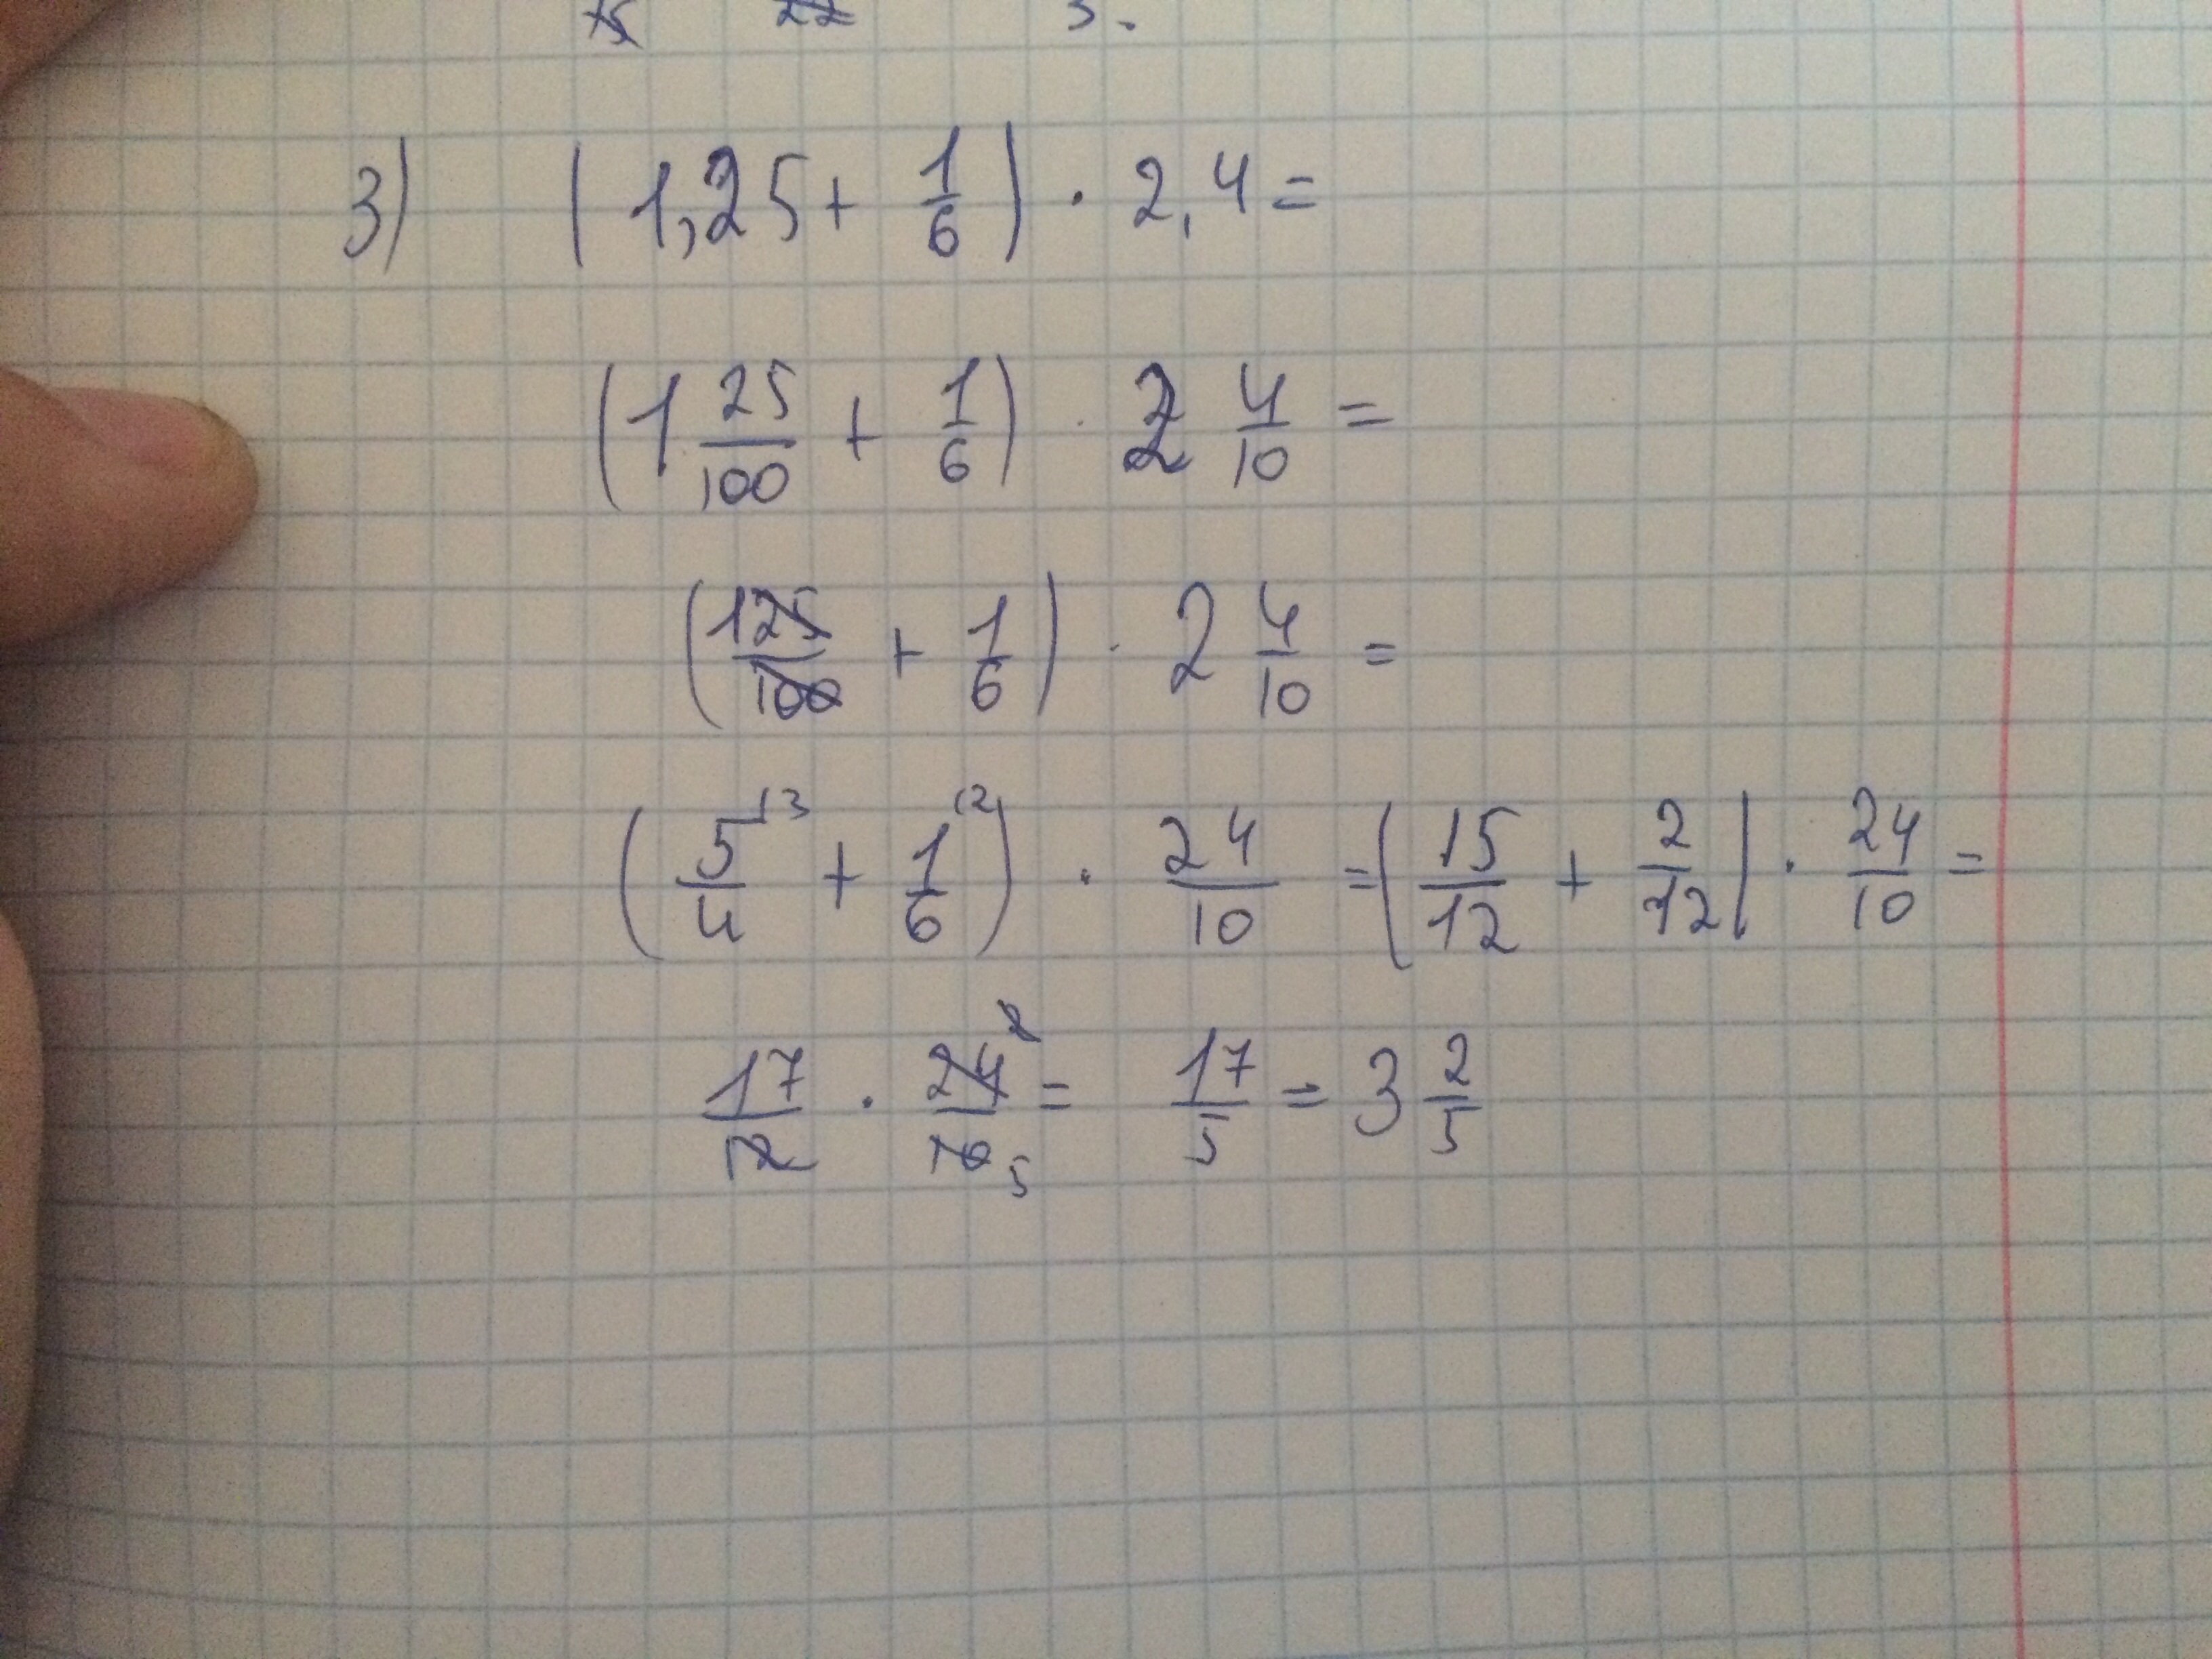 3) (1,25 + 1/6) · 2,4 =
(1 25/100 + 1/6) · 2 4/10 =
(125/100 + 1/6) · 2 4/10 =
(5/4 ⁽³ + 1/6 ⁽²) · 24/10 = (15/12 + 2/12) · 24/10 =
17/12 · 24²/10₅ = 17/5 = 3 2/5